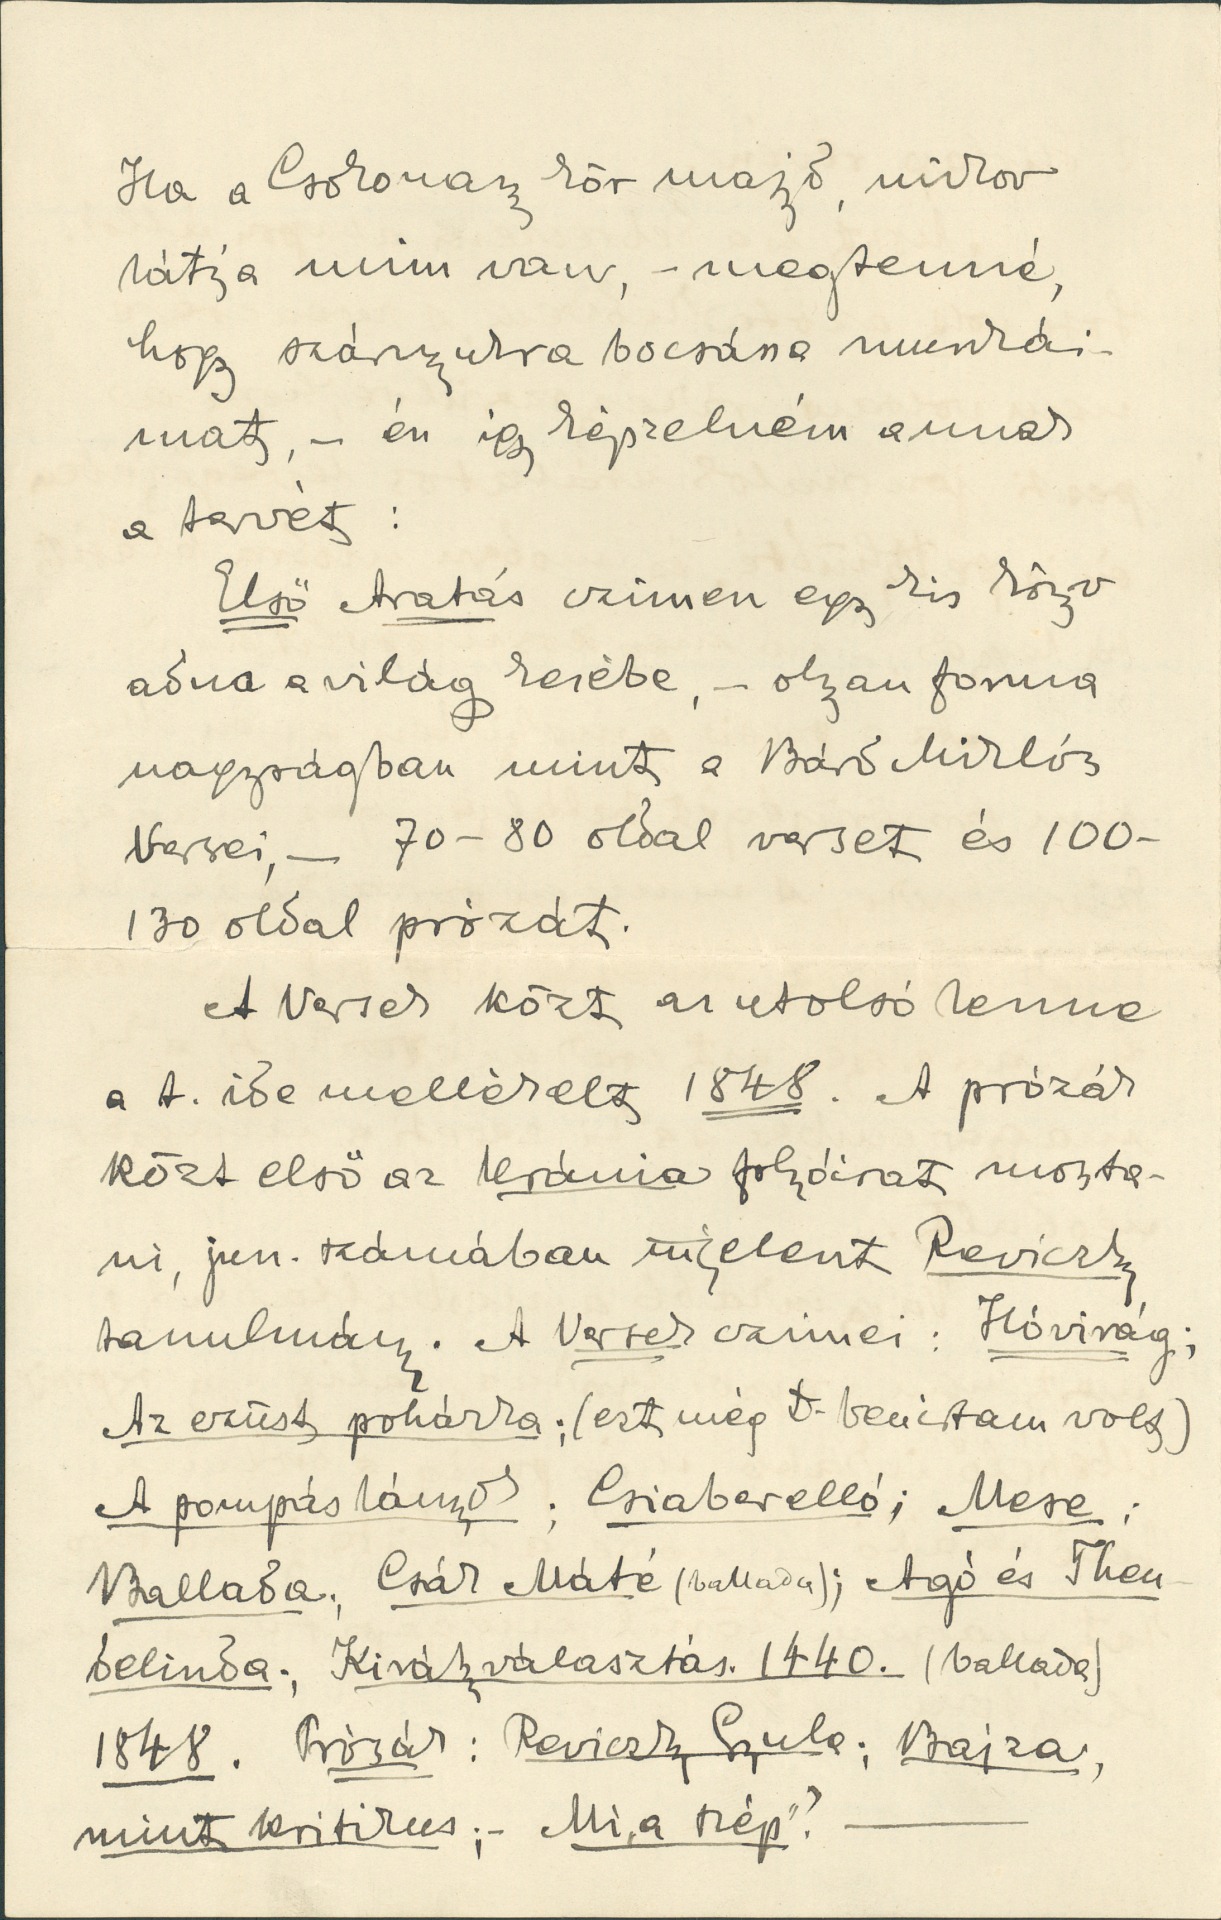 Ha a Csokonay kör majd, mikor
látja mim van, – megtenné,
hogy szárnyukra bocsássa munkái-
mat, – én így képzelném annak
a tervét :
Első Aratás czímen egy kis könyv
adna a világ kezébe, – olyan forma
nagyságban mint a Báró Miklós
Versei, – 70 – 80 oldal verset és 100 –
130 oldal prózát.
A Versek közt az utolsó lenne
a t. ide mellékelt 1848. A prózák
közt első az Uránia folyóirat mosta-
ni, jun. számában megjelent Reviczky
tanulmány. A Versek czímei : Hóvirág ;
Az ezüst pohárka ; (ezt még D-ben írtam volt)
A pompás lánzók ; Csiaberelló ; Mese ;
Ballada ; Csák Máté (ballada) ; Agó és Theu-
delinda ; Királyválasztás. 1440. (ballada)
1848. Prózák : Reviczky Gyula ; Bajza,
mint kritikus ; – Mi „a szép"? —